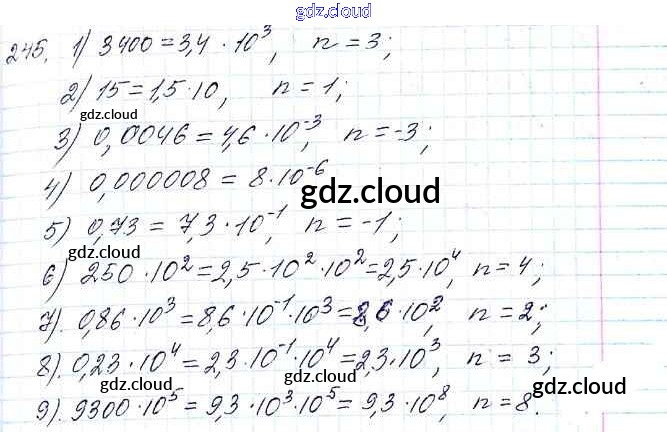 gdz.cloud
245. 1) 3400 = 3,4 · 10³, n = 3;
2) 15 = 1,5 · 10, n = 1;
gdz.cloud
3) 0,0046 = 4,6 · 10⁻³, n = -3;
gdz.cloud
4) 0,000008 = 8 · 10⁻⁶
gdz.cloud
5) 0,73 = 7,3 · 10⁻¹, n = -1;
gdz.cloud
6) 250 · 10² = 2,5 · 10² · 10² = 2,5 · 10⁴, n = 4;
gdz.cloud
7). 0,86 · 10³ = 8,6 · 10⁻¹ · 10³ = 8,6 · 10², n = 2;
gdz.cloud
8). 0,23 · 10⁴ = 2,3 · 10⁻¹ · 10⁴ = 2,3 · 10³, n = 3;
gdz.cloud
gdz.cloud
9). 9300 · 10⁵ = 9,3 · 10³ · 10⁵ = 9,3 · 10⁸, n = 8.